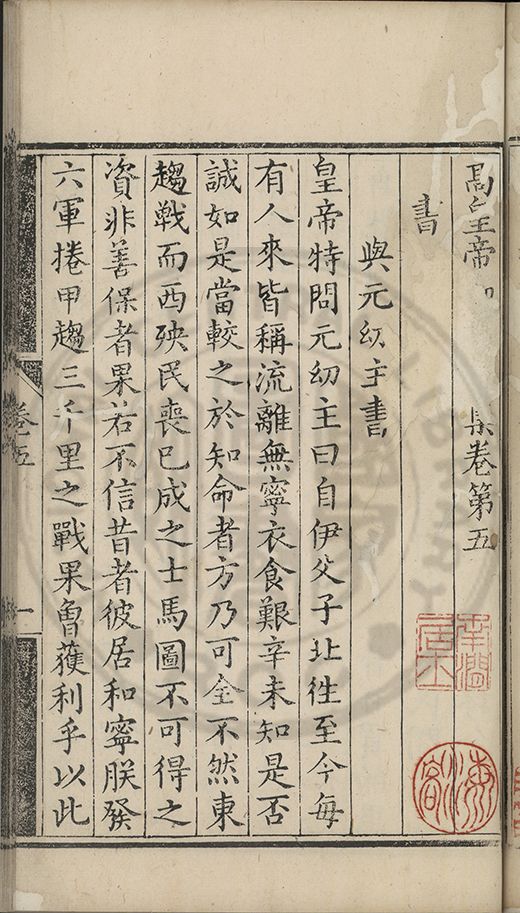 高皇帝御 集卷第五
書
與元幼主書
皇帝特問元幼主曰自伊父子北徃至今每
有人來皆稱流離無寧衣食艱辛未知是否
誠如是當較之於知命者方乃可全不然東
趨戰而西殃民喪已成之士馬圖不可得之
資非善保者果若不信昔者彼居和寧朕發
六軍捲甲趨三千里之戰果曾獲利乎以此
卷五
一